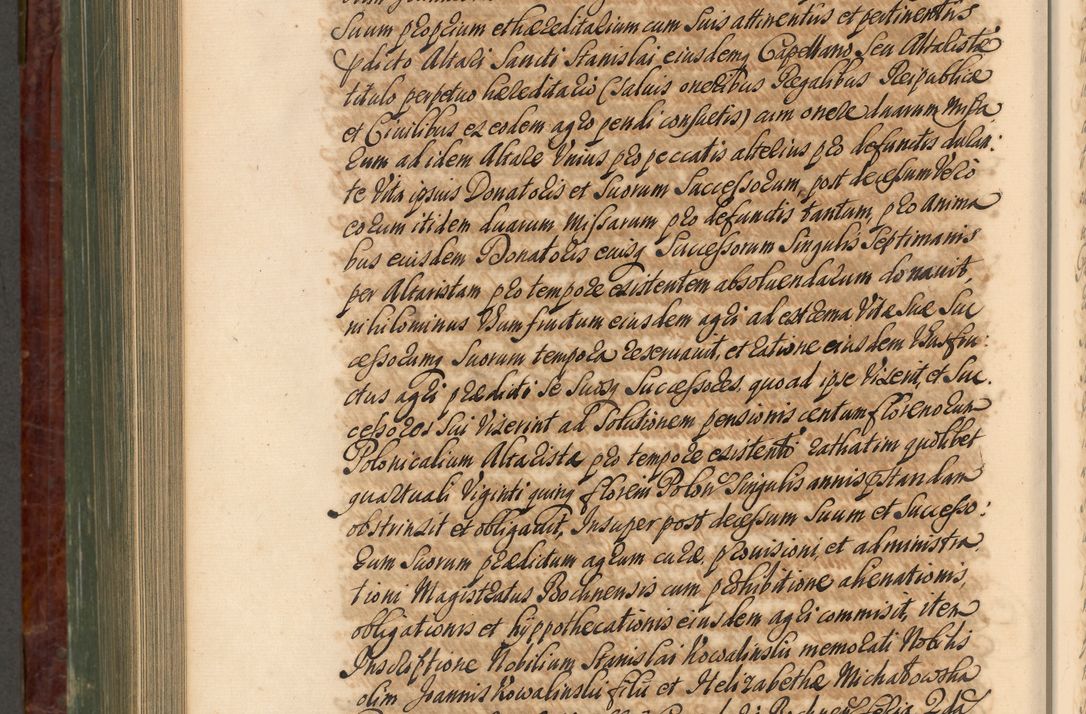 Suum proprium et hæreditarium cum suis attinentiis et pertinentiis
pdicto Altari Sancti Stanislai eiusdemq Capellano Seu Altaristæ
titulo perpetuo hæreditario (Salvis oneribus Regalibus Reipublicæ
et Civilibus ex eodem agro pendi consuetis) cum onere duarum Missa
rum ad idem Altare Unius pro peccatis alterius pro defunctis duran:
te Vita ipsius Donatoris et Suorum Successorum, post decessum Vero
eorum itidem duarum Missarum pro defunctis tantum, pro Anima
bus eiusdem Donatoris eiusq Successorum Singulis Septimanis
per Altaristam pro tempore existentem absolvendarum donavit,
nihilominus Usum fructum eiusdem agri ad extrema Vitæ Suæ Suc
cessorumq Suorum tempora reservavit, et ratione eiusdem Ususfru:
ctus agri prædicti Se Suosq Successores, quoad ipse Vixerit, et Suc.
cessores Sui Vixerint ad Solutionem pensionis centum florenorum
Polonicalium Altaristæ pro tempore existenti rathatim quolibet
quartuali Viginti quinq floreni Polon Singulis annis pstandam
obstrinxit et obligavit, Insuper post decessum Suum et Successo:
rum Suorum prædictum agrum curæ, provisioni, et administra
tioni Magistratus Bochnensis cum prohibitione alienationis,
obligationis et hyppothecationis eiusdem agri commisit, item
Inscriptione Nobilium Stanislai Kowalinskii memorati Nobilis
olim Joannis Kowalinskii filii et Helizabethæ Michałowska